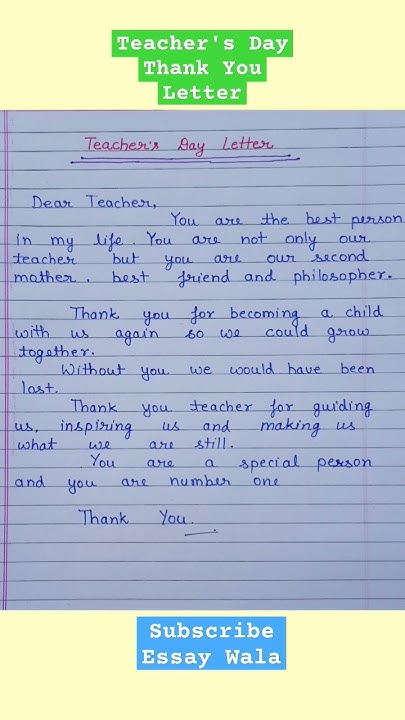 Teacher's Day
Thank You
Letter
Teacher's Day Letter
Dear Teacher,
You are the best person
in my life. You are not only our
teacher but you are our second
mother. best friend and philosopher.
Thank you for becoming a child
with us again so we could grow
together.
Without you we would have been
lost.
Thank you teacher for guiding
us, inspiring us and making us
what we are still.
You are a special person
and you are number one
Thank You.
Subscribe
Essay Wala